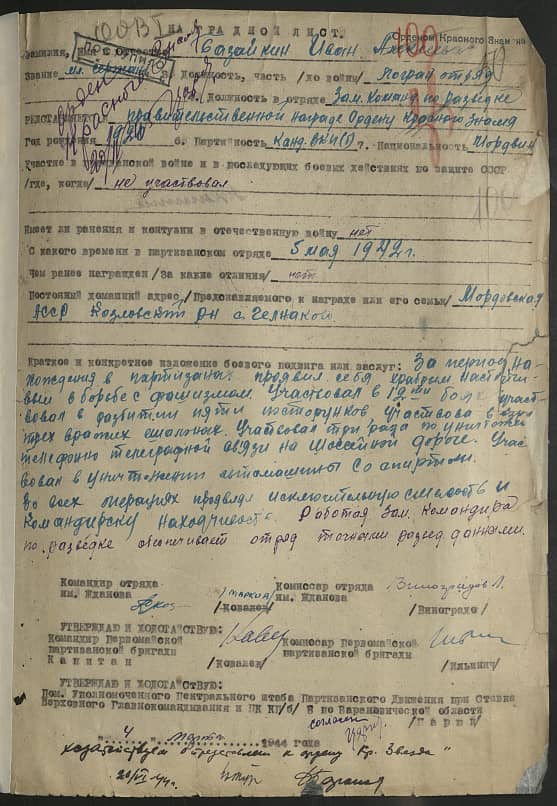 НАГРАДНОЙ ЛИСТ.
Орденом Красного Знамени
Фамилия, Имя и Отчество Базайкин Иван
Звание мл. сержант 3. Должность, часть /до войны/ погран отряд
Должность в отряде Зам. Команд. по разведке
правительственной награде Ордену Красного Знамя
Год рождения 1920 6. Партийность Канд. ВКП(б) 7. Национальность Мордвин
Участие в гражданской войне и в последующих боевых действиях по защите СССР
/где, когда/ не участвовал
Имеет ли ранения и контузии в отечественную войну нет
С какого времени в партизанском отряде 5 мая 1942 г.
Чем ранее награжден /за какие отличия/ нет
Постоянный домашний адрес /Представляемого к награде или его семьи/ Мордовская
АССР Козловский р-н с.
Краткое и конкретное изложение боевого подвига или заслуг: За период на-
хождения в партизанах проявил себя храбрым настойчи-
вым в борьбе с фашизмом. Участвовал в 12ти боях участ-
вовал в разбитии пяти Участвовал в
трех вражих эшелонах. Участвовал три раза по уничтожен
телефонно телеграфной связи на шоссейной дороге. Учас
вовал в уничтожении автомашины со спиртом.
Во всех операциях проявлял исключительную смелость и
командирску находчивость. Работая Зам. Командира
по разведке обеспечивает отряд точными развед. данными.
Командир отряда Комиссар отряда Виноградов Л.
им. Жданова им. Жданова
/Ковалев/ /Виноградо/
УТВЕРЖДАЮ И ХОДОТАЙСТВУЮ:
Командир Первомайской Комиссар Первомайской
партизанской бригады партизанской бригады
Капитан /Ковалев/ /Ильин/
УТВЕРЖДАЮ И ХОДОТАЙСТВУЮ:
Пом. Уполномоченного Центрального штаба Партизанского Движения при Ставке
Верховного Главнокомандывания и ЦК КП/б/ Б по Барановичской области
согласен
"4" марта 1944 года
ходатайствую о представлении к ордену "Кр. Звезда"